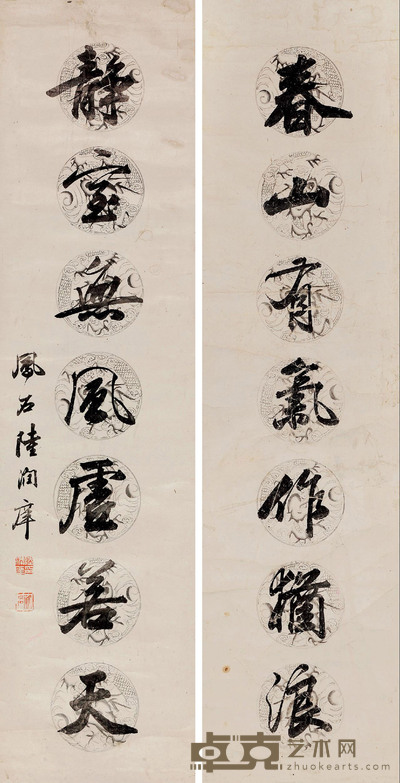 春山有氣作猶浪
靜室無風虛若天
鳳石陸潤庠
卓克艺术网
zhuokearts.com